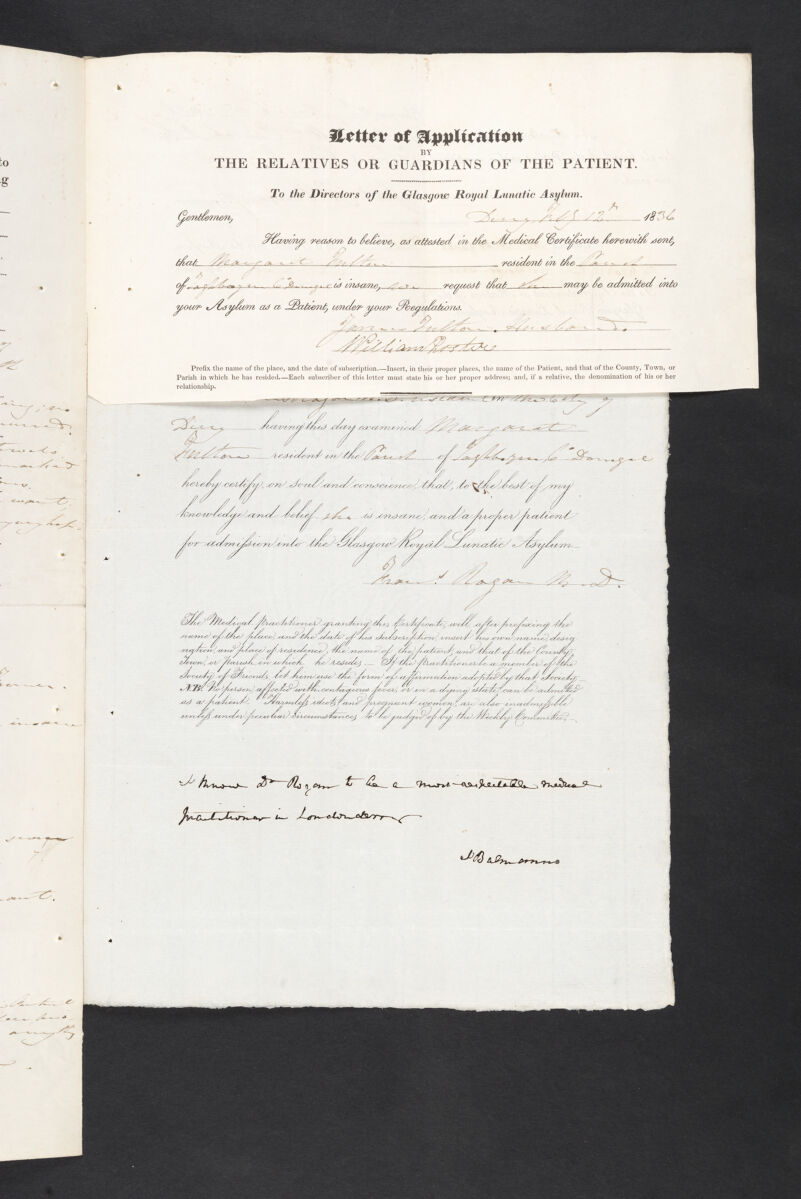 to
g
Letter of Application
BY
THE RELATIVES OR GUARDIANS OF THE PATIENT.
To the Directors of the Glasgow Royal Lunatic Asylum.
Gentlemen, Derry 12th 1836
Having reason to believe, as attested in the Medical Certificate herewith sent,
that Margaret Fulton resident in the Parish
of Co Donegal is insane, we request that she may be admitted into
your Asylum as a Patient, under your Regulations.
James Fulton. Husband.
William Foster
Prefix the name of the place, and the date of subscription.—Insert, in their proper places, the name of the Patient, and that of the County, Town, or
Parish in which he has resided.—Each subscriber of this letter must state his or her proper address; and, if a relative, the denomination of his or her
relationship.
in the City of
Derry having this day examined Margaret
Fulton resident in the Parish of Co Donegal
hereby certify, on soul and conscience that, to the best of my
knowledge and belief she is insane, and a proper patient
for admission into the Glasgow Royal Lunatic Asylum
Frans. Rogan M.D.
The Medical Practitioner granting this Certificate, will, after prefixing the
name of the place, and the date of his subscription, insert his own name, desig
nation, and place of residence, the name of the patient, and that of the County,
Town, or parish, in which he resides.— If the practitioner be a member of the
Society of Friends, let him use the form of affirmation adopted by that Society.—
N.B. No person affected with contagious fever, or in a dying state, can be admitted
as a patient. Harmless idiots, and pregnant women, are also inadmissible
unless under peculiar circumstances, to be judged of by the Weekly Committee.
I know Dr Rogan to be a most respectable medical
Practitioner in Londonderry
J Balmanno